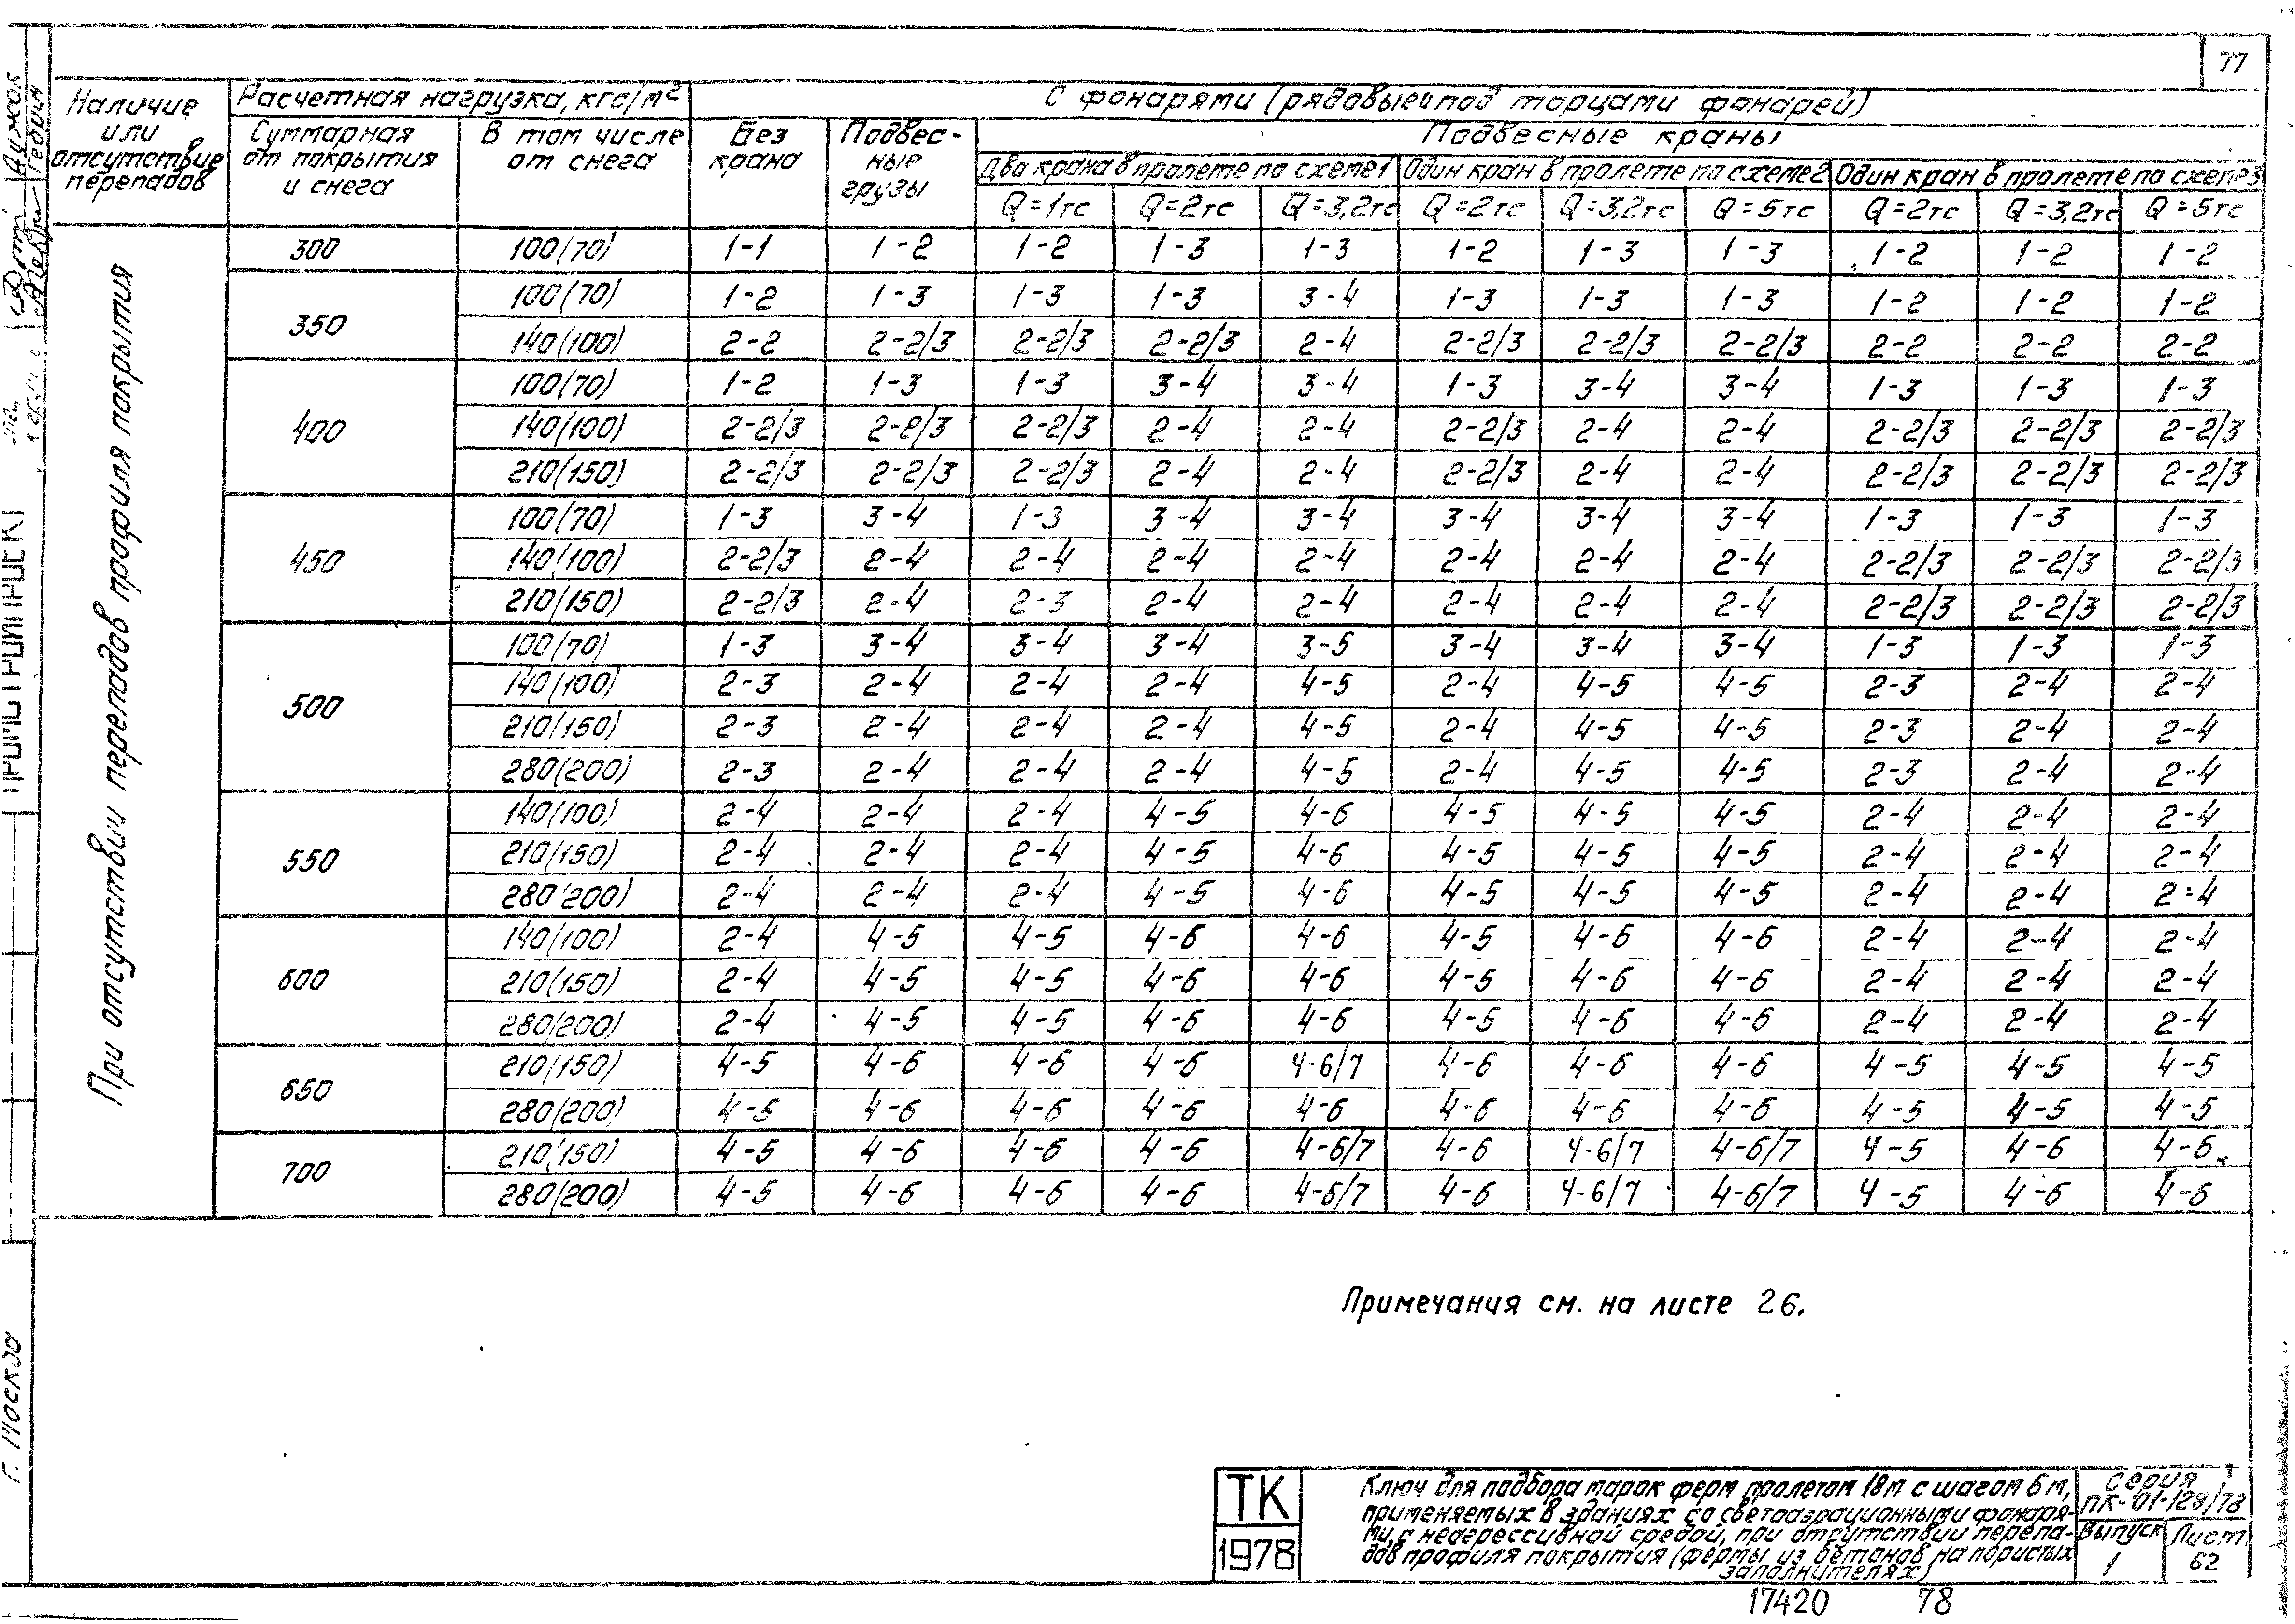 77
Наличие или отсутствие перепадов
Расчетная нагрузка, кгс/м²
С фонарями (рядовые и под торцами фонарей)
Суммарная от покрытия и снега
В том числе от снега
Без крана
Подвес- ные грузы
Подвесные краны
Два крана в пролете по схеме 1
Один кран в пролете по схеме 2
Один кран в пролете по схеме 3
Q=1тс Q=2тс Q=3,2тс Q=2тс Q=3,2тс Q=5тс Q=2тс Q=3,2тс Q=5тс
При отсутствии перепадов профиля покрытия
300 100(70) 1-1 1-2 1-2 1-3 1-3 1-2 1-3 1-3 1-2 1-2 1-2
350 100(70) 1-2 1-3 1-3 1-3 3-4 1-3 1-3 1-3 1-2 1-2 1-2
140(100) 2-2 2-2/3 2-2/3 2-2/3 2-4 2-2/3 2-2/3 2-2/3 2-2 2-2 2-2
400 100(70) 1-2 1-3 1-3 3-4 3-4 1-3 3-4 3-4 1-3 1-3 1-3
140(100) 2-2/3 2-2/3 2-2/3 2-4 2-4 2-2/3 2-4 2-4 2-2/3 2-2/3 2-2/3
210(150) 2-2/3 2-2/3 2-2/3 2-4 2-4 2-2/3 2-4 2-4 2-2/3 2-2/3 2-2/3
450 100(70) 1-3 3-4 1-3 3-4 3-4 3-4 3-4 3-4 1-3 1-3 1-3
140(100) 2-2/3 2-4 2-4 2-4 2-4 2-4 2-4 2-4 2-2/3 2-2/3 2-2/3
210(150) 2-2/3 2-4 2-3 2-4 2-4 2-4 2-4 2-4 2-2/3 2-2/3 2-2/3
500 100(70) 1-3 3-4 3-4 3-4 3-5 3-4 3-4 3-4 1-3 1-3 1-3
140(100) 2-3 2-4 2-4 2-4 4-5 2-4 4-5 4-5 2-3 2-4 2-4
210(150) 2-3 2-4 2-4 2-4 4-5 2-4 4-5 4-5 2-3 2-4 2-4
280(200) 2-3 2-4 2-4 2-4 4-5 2-4 4-5 4-5 2-3 2-4 2-4
550 140(100) 2-4 2-4 2-4 4-5 4-6 4-5 4-5 4-5 2-4 2-4 2-4
210(150) 2-4 2-4 2-4 4-5 4-6 4-5 4-5 4-5 2-4 2-4 2-4
280(200) 2-4 2-4 2-4 4-5 4-6 4-5 4-5 4-5 2-4 2-4 2-4
600 140(100) 2-4 4-5 4-5 4-6 4-6 4-5 4-6 4-6 2-4 2-4 2-4
210(150) 2-4 4-5 4-5 4-6 4-6 4-5 4-6 4-6 2-4 2-4 2-4
280(200) 2-4 4-5 4-5 4-6 4-6 4-5 4-6 4-6 2-4 2-4 2-4
650 210(150) 4-5 4-6 4-6 4-6 4-6/7 4-6 4-6 4-6 4-5 4-5 4-5
280(200) 4-5 4-6 4-6 4-6 4-6 4-6 4-6 4-6 4-5 4-5 4-5
700 210(150) 4-5 4-6 4-6 4-6 4-6/7 4-6 4-6/7 4-6/7 4-5 4-6 4-6
280(200) 4-5 4-6 4-6 4-6 4-6/7 4-6 4-6/7 4-6/7 4-5 4-6 4-6
Примечания см. на листе 26.
г. Москва
ТК
1978
Ключ для подбора марок ферм пролетом 18м с шагом 6м,
применяемых в зданиях со светоаэрационными фонаря-
ми, с неагрессивной средой, при отсутствии перепа-
дов профиля покрытия (фермы из бетонов на пористых
заполнителях)
серия
ПК-01-129/78
Выпуск
1
Лист
62
17420 78